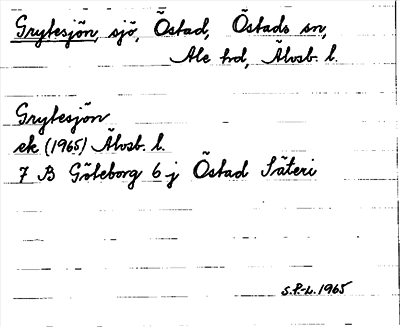 Grytesjön, sjö, Östad, Östads sn,
Ale hd, Älvsb. l.
Grytesjön
ek (1965) Älvsb. l.
7 B Göteborg 6 j Östad Säteri
S.P.-L. 1965